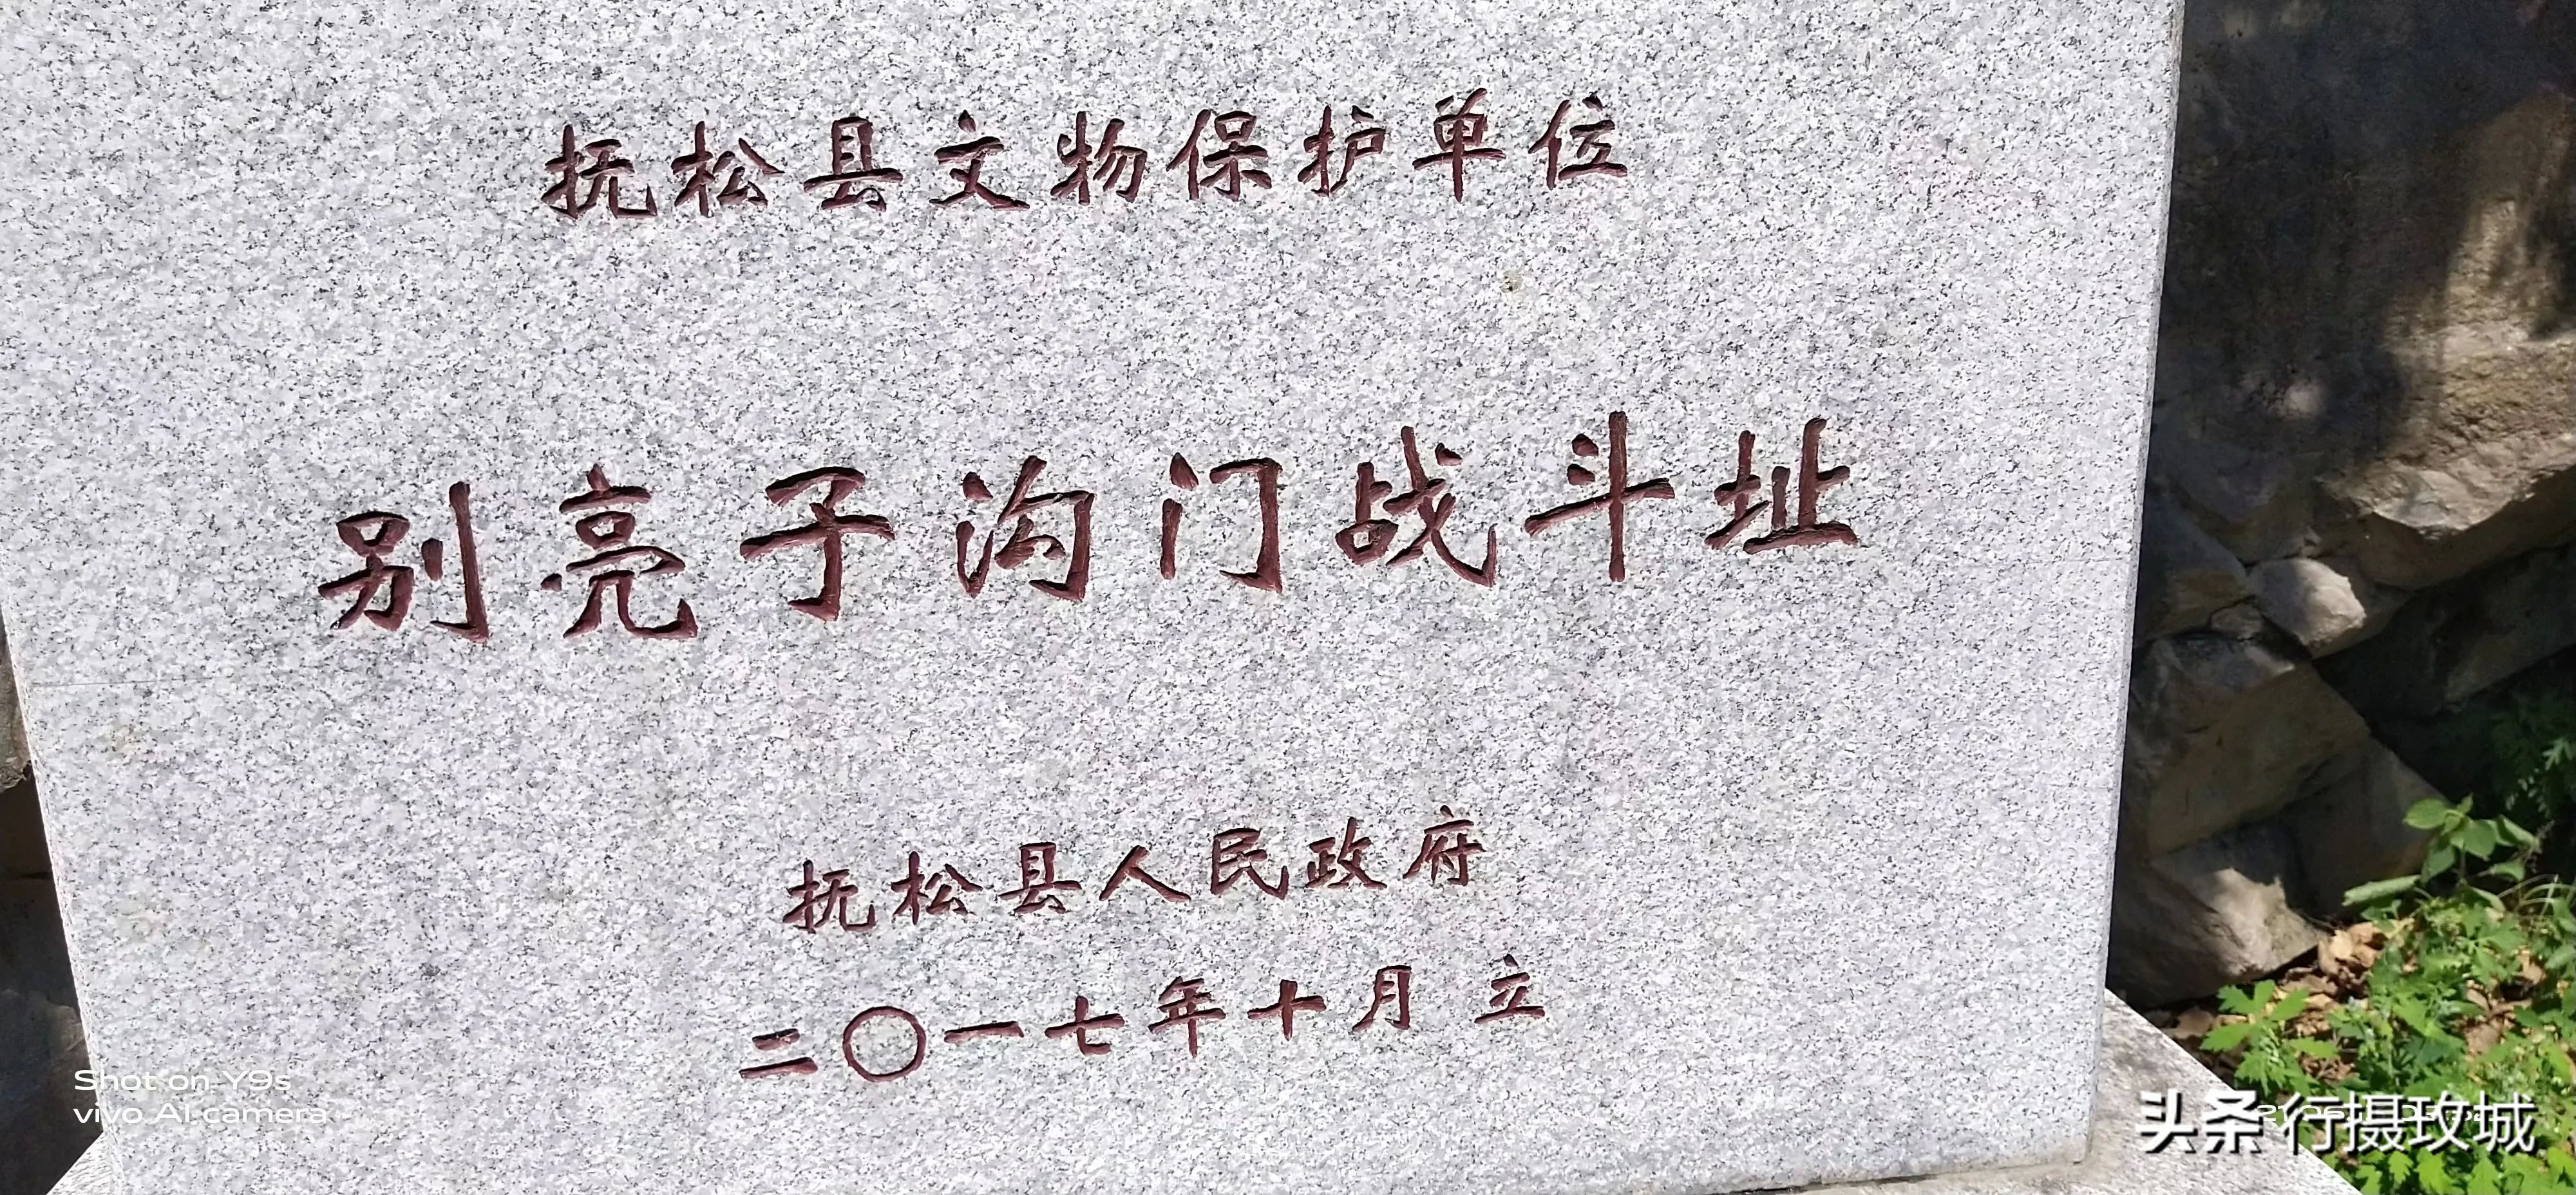 抚松县文物保护单位
别亮子沟门战斗址
抚松县人民政府
二〇一七年十月 立
Shot on Y9s
vivo AI camera
头条 行摄玫城